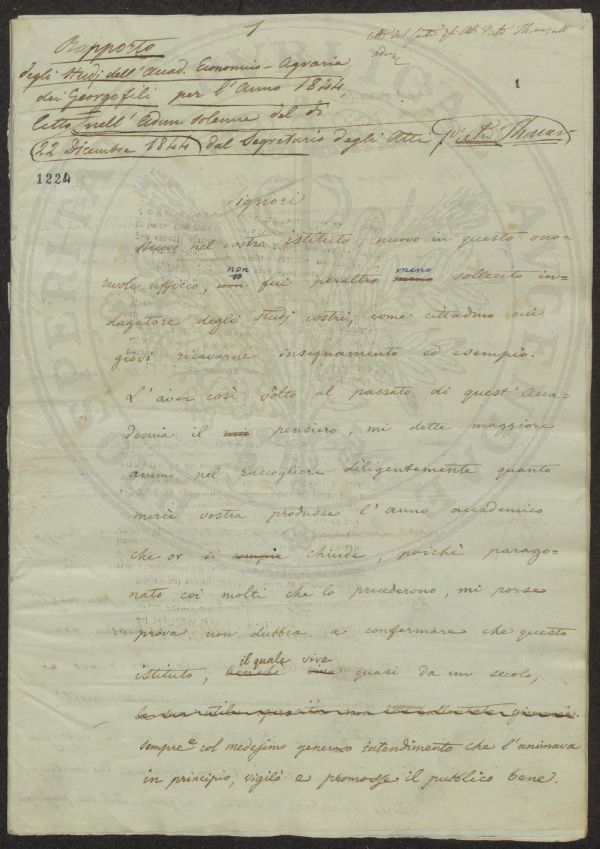 1
Rapporto
degli Studj dell'Accad. Economico-Agraria
dei Georgofili per l'Anno 1844,
letto nell'Adun. solenne del dì
22 Dicembre 1844 dal Segretario degli Atti
1
1224
Signori
Nuovo nel vostro istituto, nuovo in questo ono=
revole ufficio, non fui peraltro meno sollecito in=
dagatore degli studj vostri, come cittadino cui
giovi ricavarne insegnamento ed esempio.
L'aver così vôlto al passato di quest'Acca=
demia il mio pensiero, mi dette maggiore
animo nel raccogliere diligentemente quanto
mercè vostra produsse l'anno accademico
che or si compie chiude, poichè parago=
nato coi molti che lo precederono, mi porse
prova non dubbia a confermare che questo
istituto, il quale vive quasi da un secolo,
sempre col medesimo generoso intendimento che l'animava
in principio, vigilò e promosse il pubblico bene.